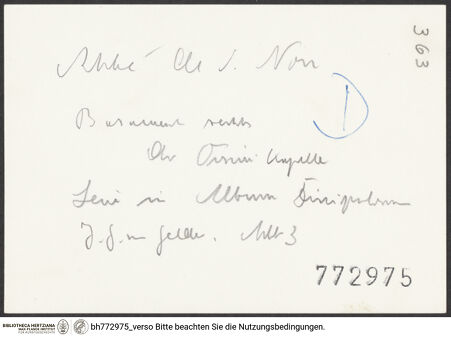 Abbé Cl. d. Non
D
Basament rechts
der Orsini Kapelle
Serie in Album
J. G. van Gelder. Abb 3
363
772975
BIBLIOTHECA HERTZIANA
MAX-PLANCK-INSTITUT
FÜR KUNSTGESCHICHTE
bh772975_verso Bitte beachten Sie die Nutzungsbedingungen.